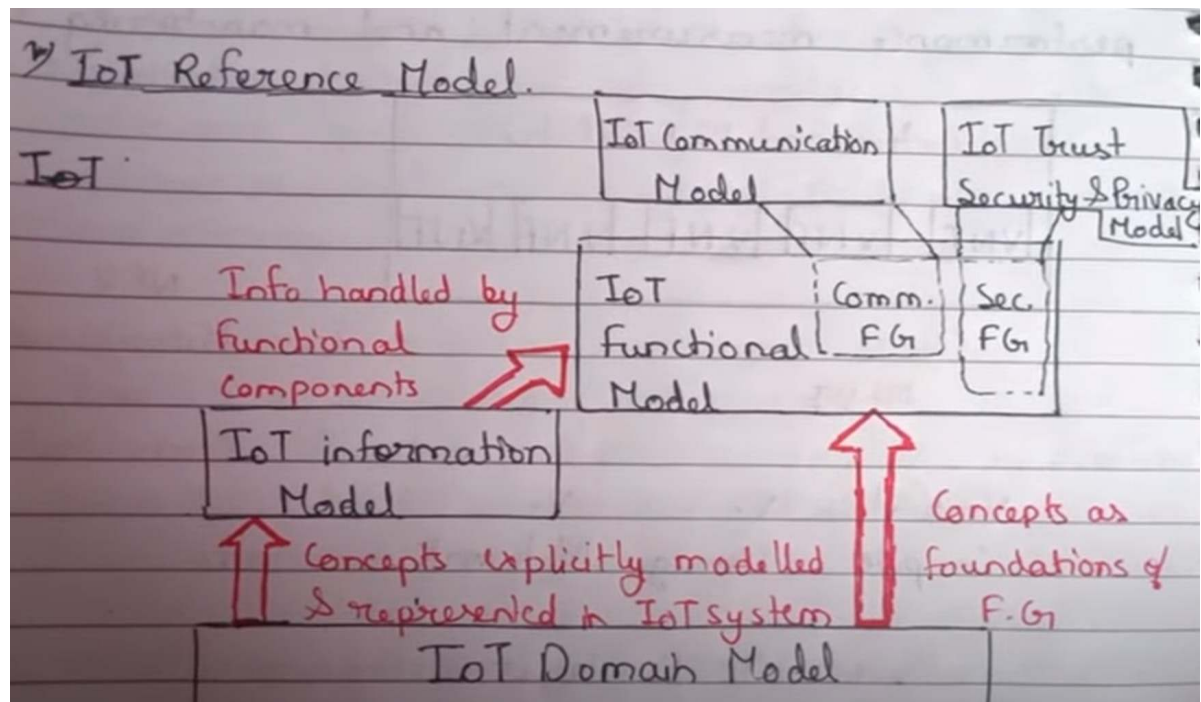 IoT Reference Model.
IoT
IoT Communication
Model
IoT Trust
Security & Privacy
Model
Info handled by
functional
components
IoT
functional
Model
Comm.
FG
Sec.
FG
IoT information
Model
Concepts explicitly modelled
& represented in IoT system
Concepts as
foundations of
F.G
IoT Domain Model